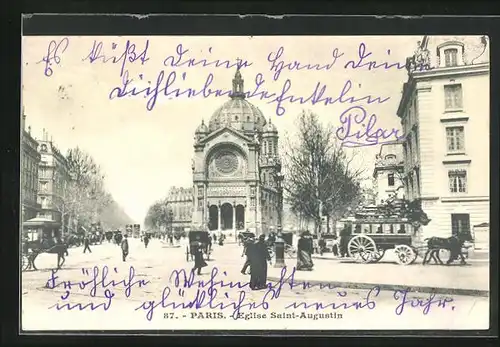 Es küßt Deine Hand Dein
Dich liebender Enkelin
Pilar
Fröhliche Weihnachten
und glückliches neues Jahr.
87. - PARIS. - Eglise Saint-Augustin